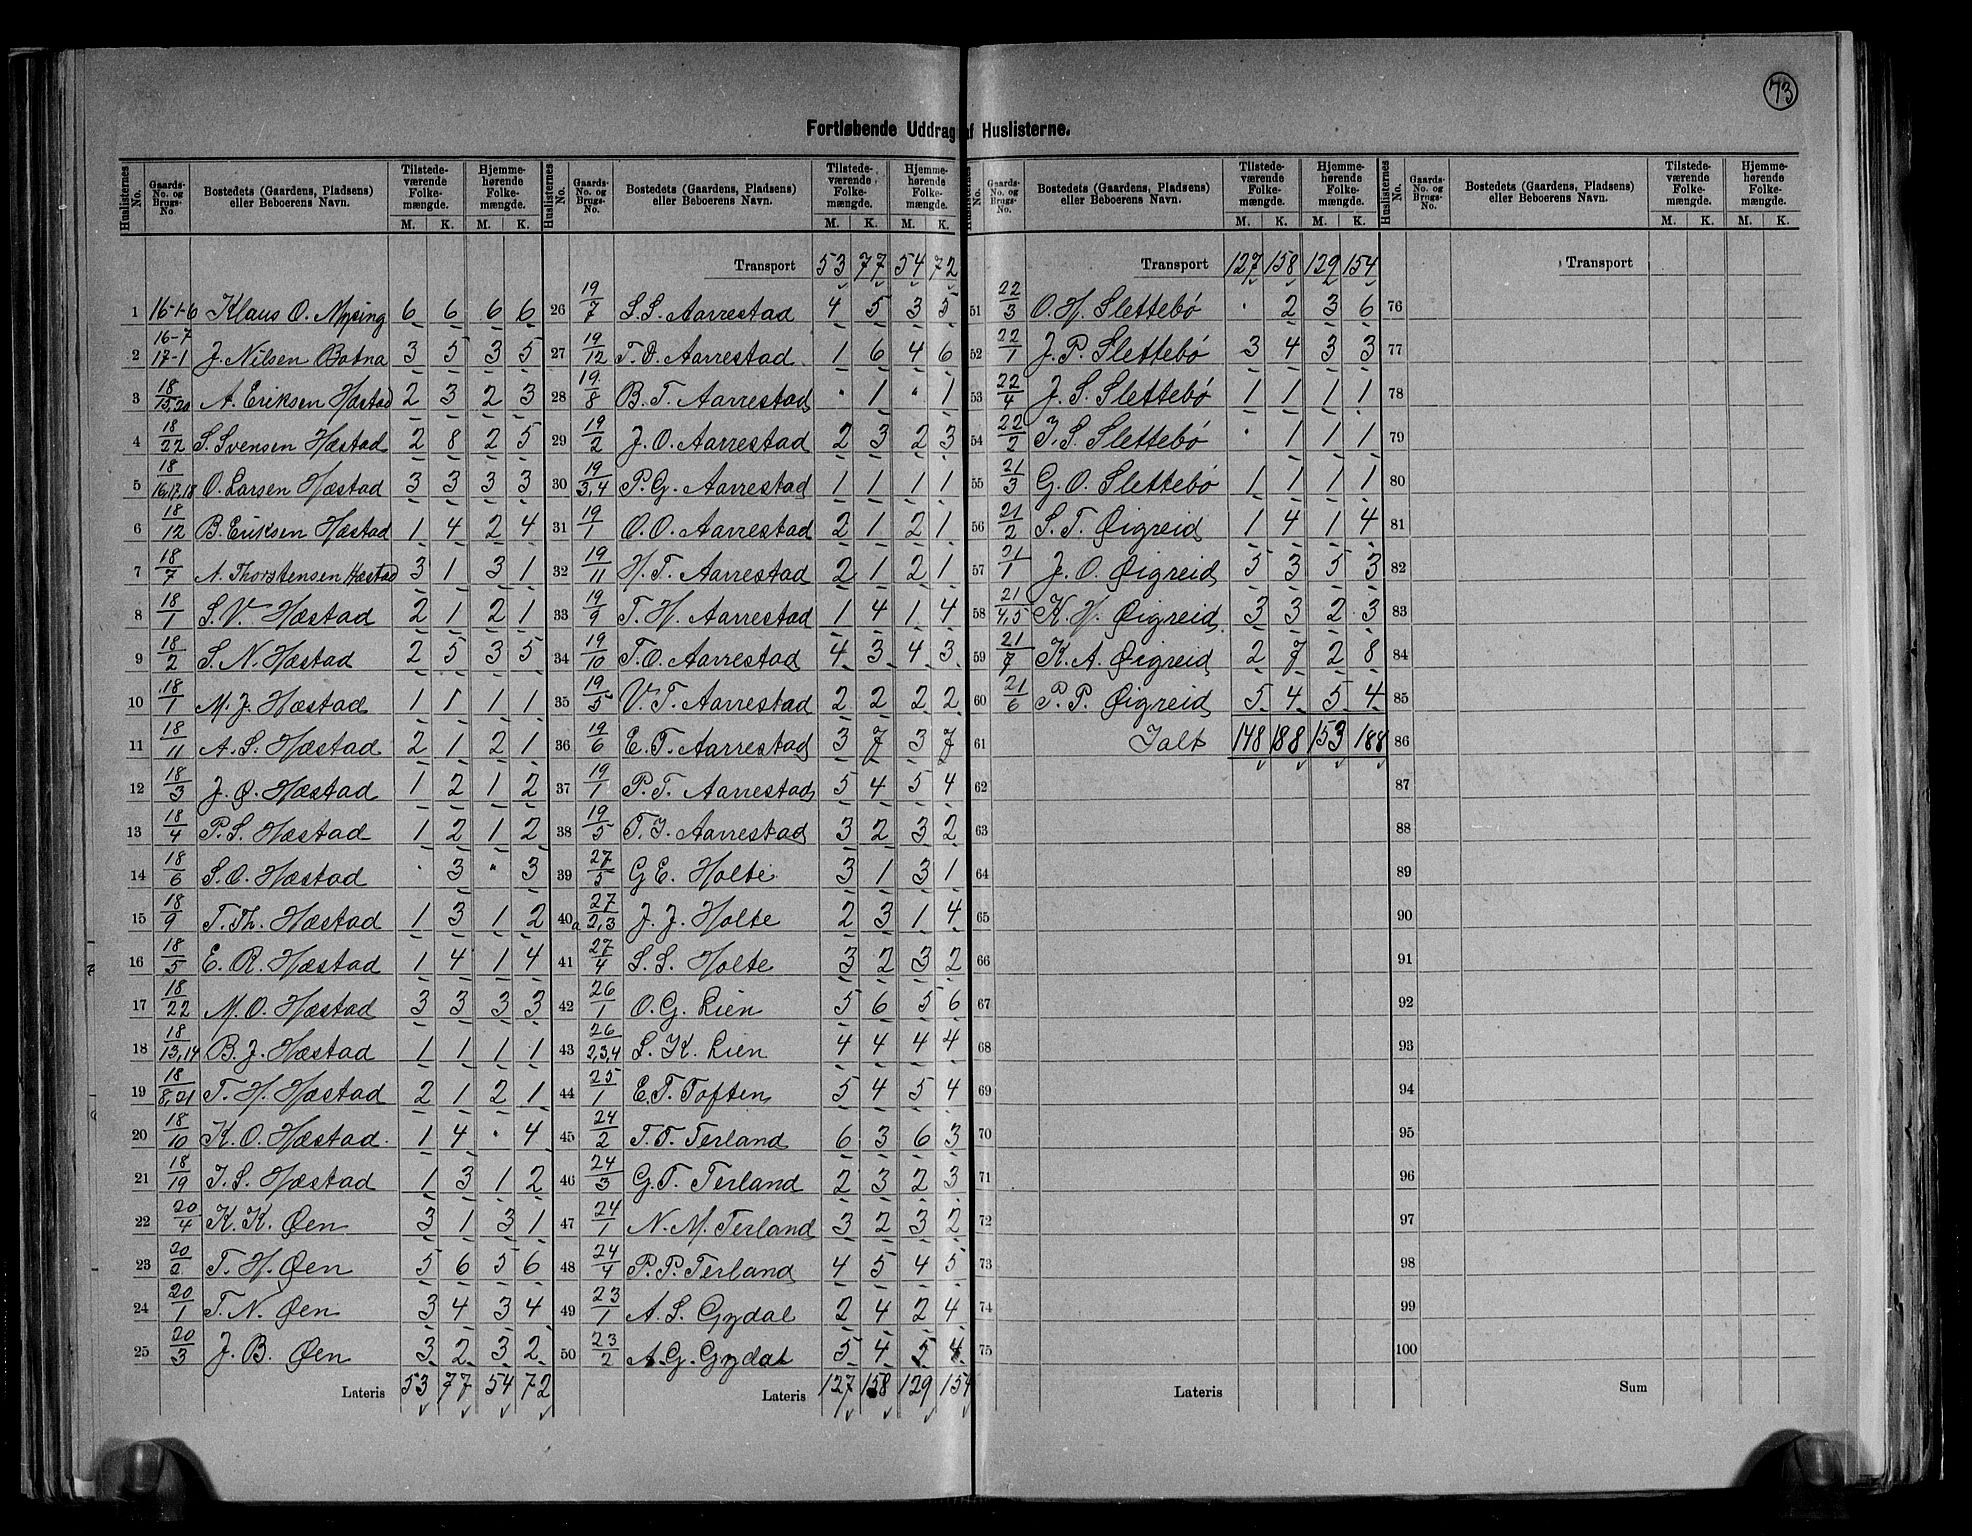 73
Fortløbende Uddrag af Huslisterne.
Huslisternes No. | Gaards-No. og Brugs-No. | Bostedets (Gaardens, Pladsens) eller Beboerens Navn. | Tilstedeværende Folkemængde. M. K. | Hjemmehørende Folkemængde. M. K.
1 16-1-6 Klaus O. Mysing 6 6 6 6
2 16-7 17-1 J. Nilsen Botna 3 5 3 5
3 18/15,20 A. Eriksen Hæstad 2 3 2 3
4 18/22 S. Svensen Hæstad 2 8 2 5
5 18/16,17,18 O. Larsen Hæstad 3 3 3 3
6 18/12 B. Eriksen Hæstad 1 4 2 4
7 18/7 A. Thorstensen Hæstad 3 1 3 1
8 18/1 S. V. Hæstad 2 1 2 1
9 18/2 S. N. Hæstad 2 5 3 5
10 18/1 M. J. Hæstad 1 1 1 1
11 18/11 A. S. Hæstad 2 1 2 1
12 18/3 J. Ø. Hæstad 1 2 1 2
13 18/4 P. S. Hæstad 1 2 1 2
14 18/6 S. O. Hæstad · 3 · 3
15 18/9 T. Th. Hæstad 1 3 1 2
16 18/5 E. R. Hæstad 1 4 1 4
17 18/22 M. O. Hæstad 3 3 3 3
18 18/13,14 B. J. Hæstad 1 1 1 1
19 18/8,21 T. H. Hæstad 2 1 2 1
20 18/10 K. O. Hæstad. 1 4 · 4
21 18/19 T. S. Hæstad 1 3 1 2
22 20/4 K. K. Øen 3 1 3 1
23 20/2 T. H. Øen 5 6 5 6
24 20/1 T. N. Øen 3 4 3 4
25 20/3 J. B. Øen 3 2 3 2
Lateris 53 77 54 72
Huslisternes No. | Gaards-No. og Brugs-No. | Bostedets (Gaardens, Pladsens) eller Beboerens Navn. | Tilstedeværende Folkemængde. M. K. | Hjemmehørende Folkemængde. M. K.
Transport 53 77 54 72
26 19/7 S. S. Aarrestad 4 5 3 5
27 19/12 T. O. Aarrestad. 1 6 4 6
28 19/8 B. T. Aarrestad · 1 · 1
29 19/2 J. O. Aarrestad 2 3 2 3
30 19/3,4 P. G. Aarrestad 1 1 1 1
31 19/1 O. O. Aarrestad 2 1 2 1
32 19/11 H. T. Aarrestad 2 1 2 1
33 19/9 T. H. Aarrestad 1 4 1 4
34 19/10 T. O. Aarrestad 4 3 4 3
35 19/5 V. T. Aarrestad 2 2 2 2
36 19/6 E. T. Aarrestad 3 7 3 7
37 19/1 P. T. Aarrestad 5 4 5 4
38 19/5 T. J. Aarrestad 3 2 3 2
39 27/5 G. E. Holte 3 1 3 1
40 a 27/2,3 J. J. Holte 2 3 1 4
41 27/4 S. S. Holte 3 2 3 2
42 26/1 O. G. Lien 5 6 5 6
43 26/2,3,4 S. K. Lien 4 4 4 4
44 25/1 E. T. Toften 5 4 5 4
45 24/2 T. T. Terland 6 3 6 3
46 24/3 G. T. Terland 2 3 2 3
47 24/1 N. M. Terland 3 2 3 2
48 24/4 P. P. Terland 4 5 4 5
49 23/1 A. S. Gydal 2 4 2 4
50 23/2 A. G. Gydal 5 4 5 4
Lateris 127 158 129 154
Huslisternes No. | Gaards-No. og Brugs-No. | Bostedets (Gaardens, Pladsens) eller Beboerens Navn. | Tilstedeværende Folkemængde. M. K. | Hjemmehørende Folkemængde. M. K.
Transport 127 158 129 154
51 22/3 O. H. Slettebø · 2 3 6
52 22/1 J. P. Slettebø 3 4 3 3
53 22/4 J. S. Slettebø 1 1 1 1
54 22/2 T. S. Slettebø · 1 1 1
55 21/3 G. O. Slettebø 1 1 1 1
56 21/2 S. T. Øigreid 1 4 1 4
57 21/1 J. O. Øigreid 5 3 5 3
58 21/4,5 K. H. Øigreid. 3 3 2 3
59 21/7 K. A. Øigreid 2 7 2 8
60 21/6 P. P. Øigreid 5 4 5 4
61 Ialt 148 188 153 188
62
63
64
65
66
67
68
69
70
71
72
73
74
75
Lateris
Huslisternes No. | Gaards-No. og Brugs-No. | Bostedets (Gaardens, Pladsens) eller Beboerens Navn. | Tilstedeværende Folkemængde. M. K. | Hjemmehørende Folkemængde. M. K.
Transport
76
77
78
79
80
81
82
83
84
85
86
87
88
89
90
91
92
93
94
95
96
97
98
99
100
Sum